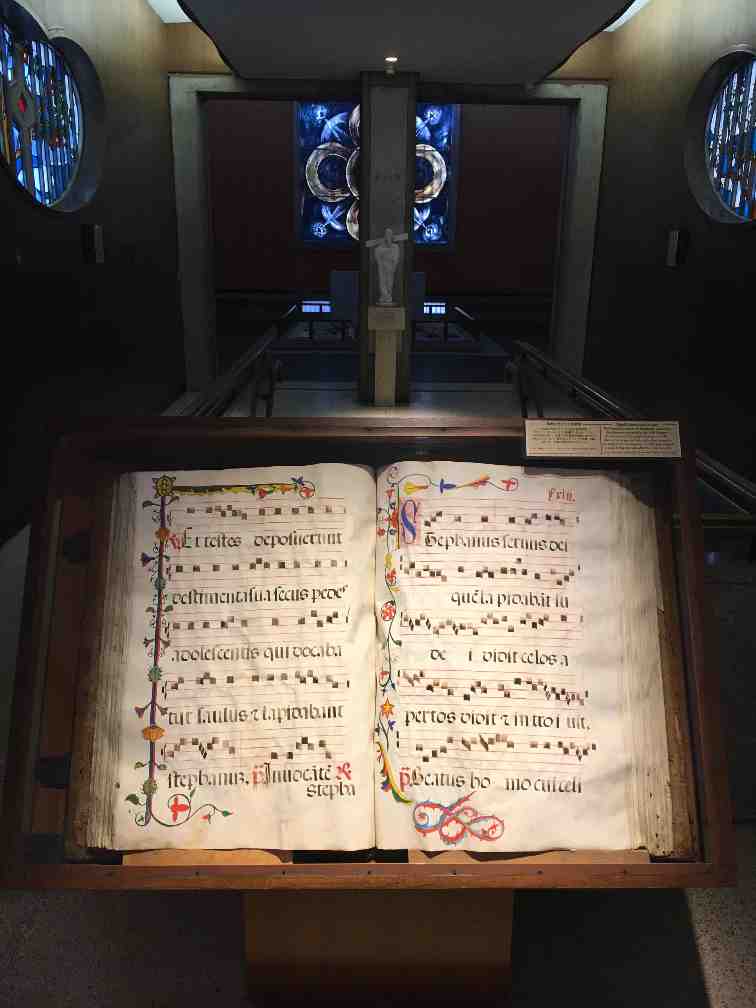 Et testes deposuerunt
vestimenta sua secus pedes
adolescentis qui vocaba
tur saulus ⁊ lapidabant
stephanuz. ℣ Inuocãtē ℟
Stepha
Stephanus seruus dei
quē la pidabāt iu
de i vidit celos a
pertos vidit ⁊ in tro i uit.
℣ Beatus ho mo cui celi